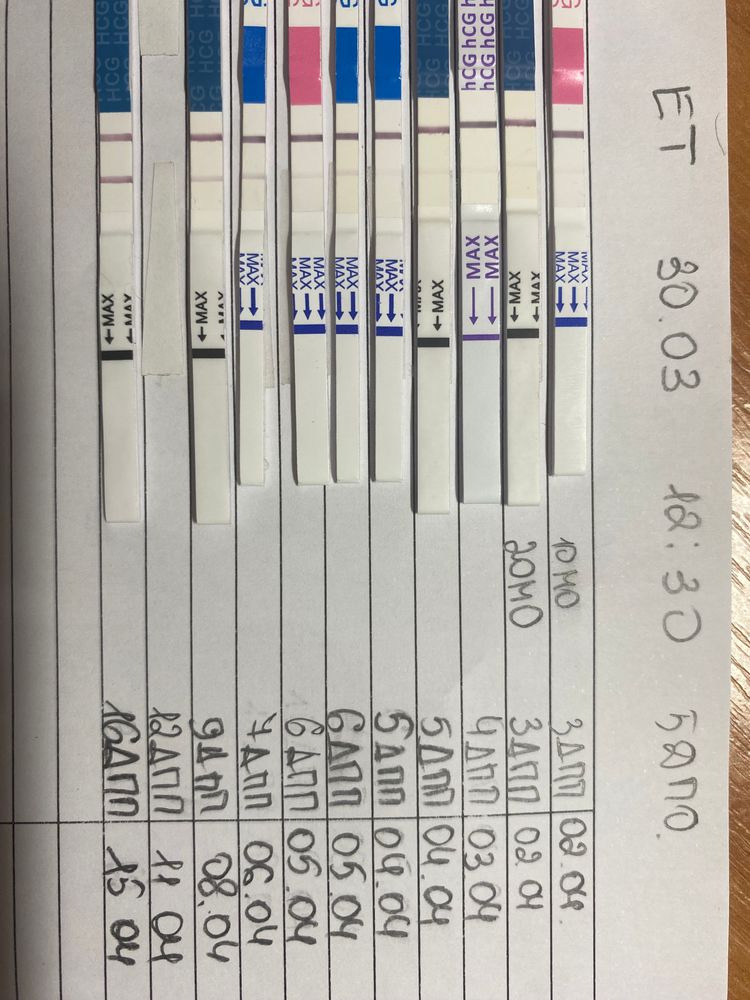 ET 30.03 12:30 5ДПО.
MAX MAX 10МО 3ДПП 02.04.
HCG HCG MAX MAX 20МО 3ДПП 02.04
hCG hCG hCG hCG MAX MAX 4ДПП 03.04
HCG HCG MAX MAX 5ДПП 04.04
MAX MAX 5ДПП 04.04
MAX MAX 6ДПП 05.04
MAX MAX MAX 6ДПП 05.04
MAX 7ДПП 06.04
HCG HCG MAX MAX 9ДПП 08.04
12ДПП 11.04
HCG HCG HCG MAX MAX 16ДПП 15.04